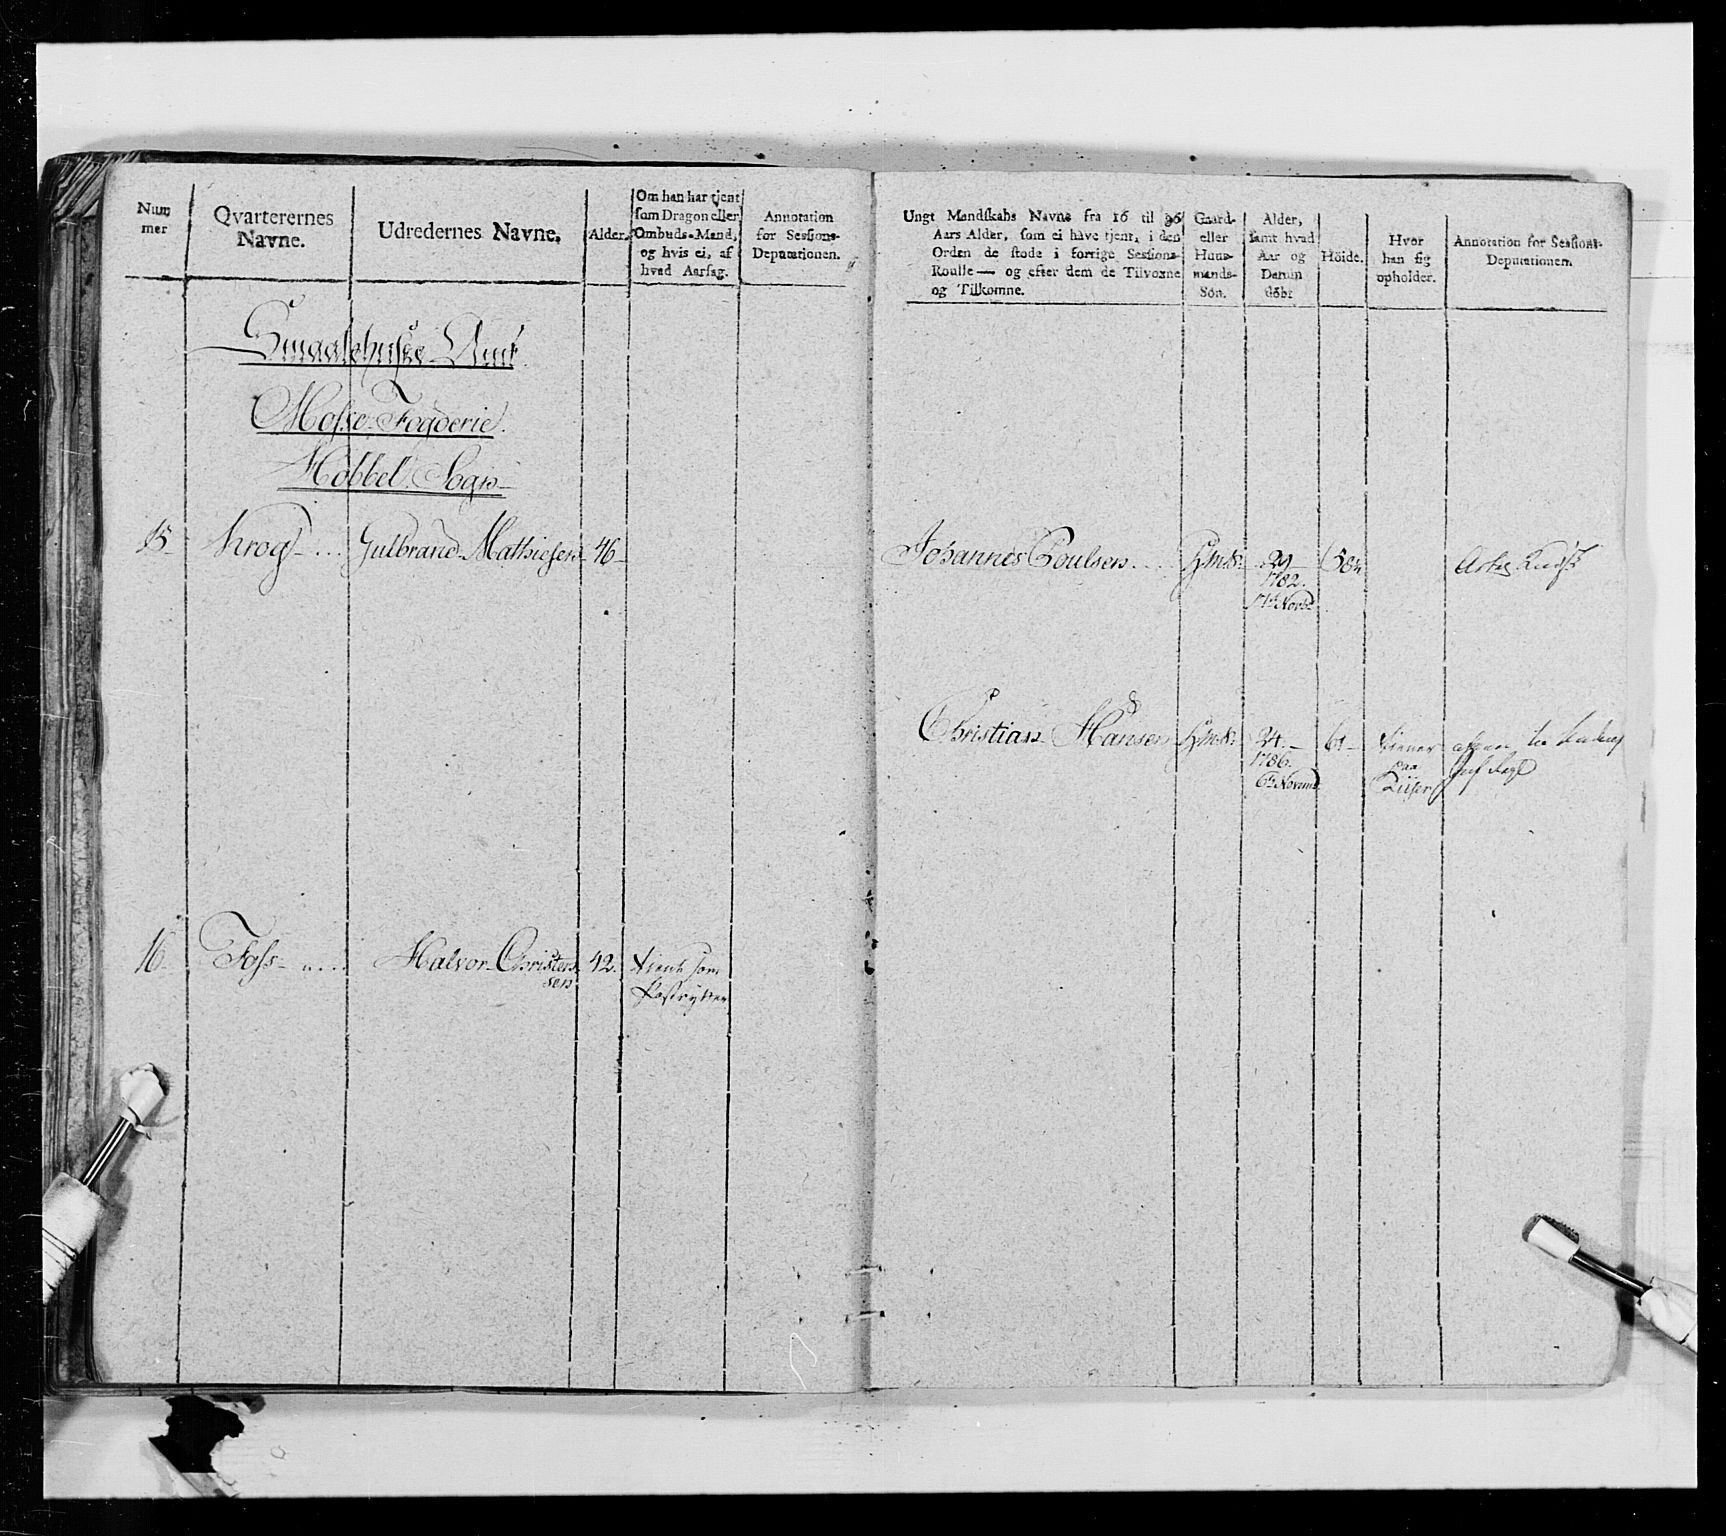 Num
mer
Qvarterernes
Navne.
Udredernes Navne.
Alder.
Om han har tjent
som Dragon eller
Ombuds-Mand,
og hvis ei, af
hvad Aarsag.
Annotation
for Sessions-
Deputationen.
Smaalehnene Amt
Mosse Fogderie.
Hobbel Sogn
15
Krog
Gulbrand Mathiesen
46
16
Foss
Halvor Christen
sen
42.
tient som
Ungt Mandskabs Navne fra 16 til 36
Aars Alder, som ei have tjent, i den
Orden de stode i forrige Sessions-
Roulle — og efter dem de Tilvoxne
og Tilkomne.
Gaard-
eller
Huus-
mands-
Søn.
Alder,
samt hvad
Aar og
Datum
født
Höide.
Hvor
han sig
opholder.
Annotation for Sessions-
Deputationen.
Johannes Poulsen
29
1782.
17de Novbr
58½
Christian Hansen
24.
1786.
6te Novemb
61
tiener
paa